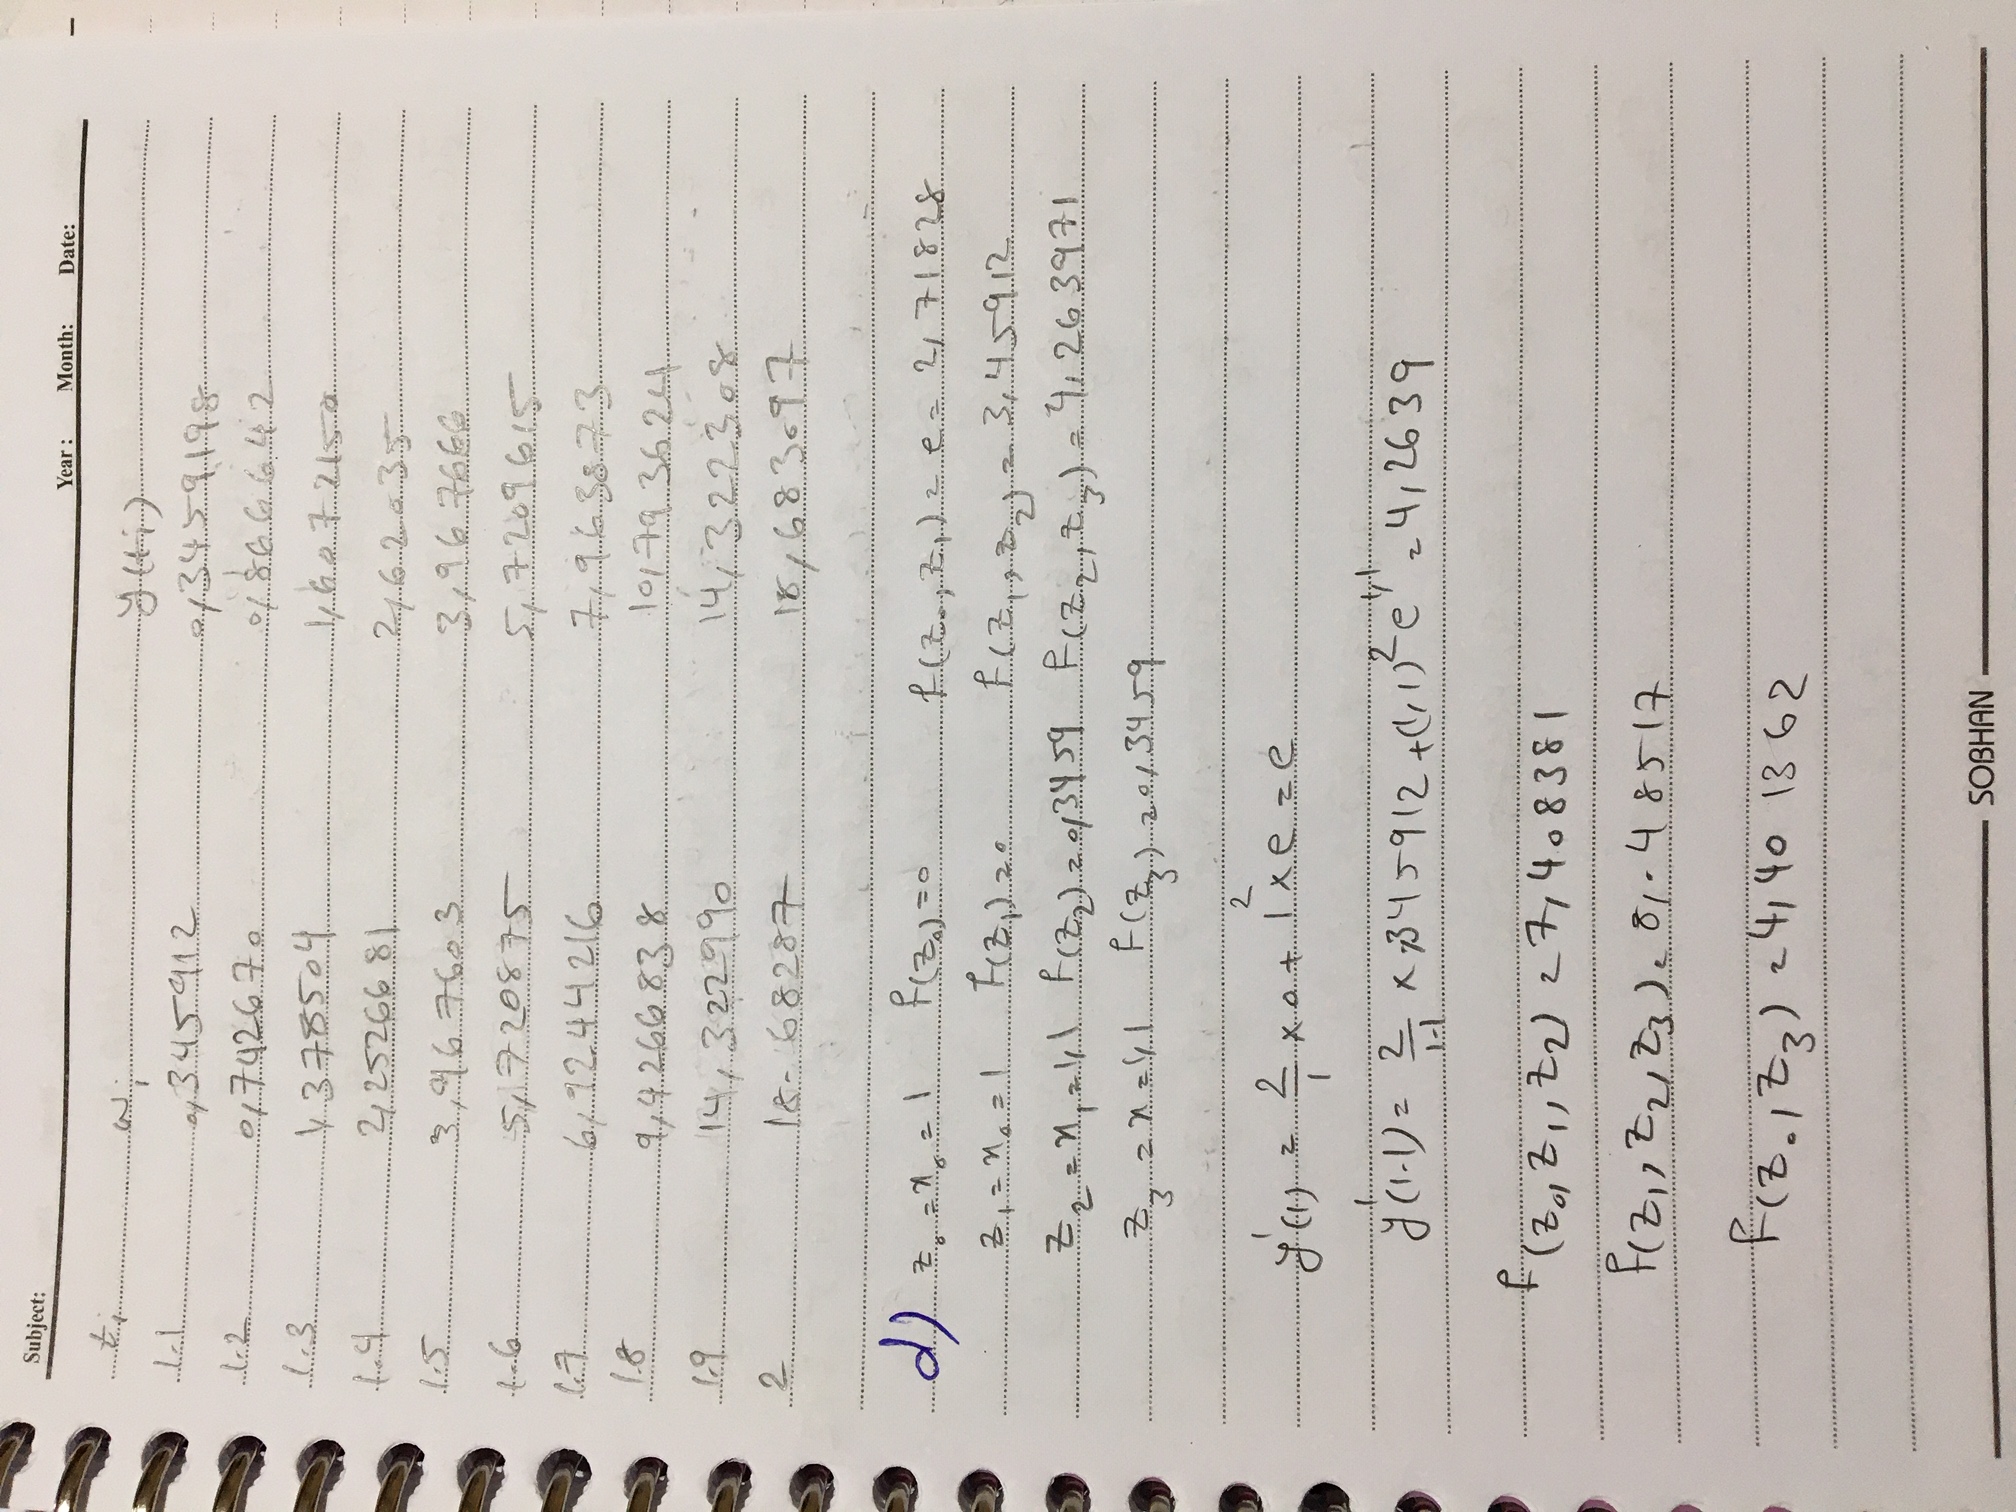 Subject: Year: Month: Date:
ti wi y(ti)
1.1 0,345912 0,3459198
1.2 0,742670 0,8666642
1.3 1,378504 1,6072150
1.4 2,2526681 2,62035
1.5 3,967603 3,9676666
1.6 5,720875 5,7209615
1.7 6,9244216 7,963873
1.8 9,4266838 10,793624
1.9 14,322990 14,322308
2 18.68287 18,683097
d) z0 = x0 = 1 f(z0) = 0 f(z0,z1) = e = 2,71828
z1 = x0 = 1 f(z1) = 0 f(z1,z2) = 3,45912
z2 = x1 = 1,1 f(z2) = 0,3459 f(z2,z3) = 4,263971
z3 = x = 1,1 f(z3) = 0,3459
y'(1) = 2/1 x 0 + 1² x e = e
y'(1.1) = 2/1.1 x .345912 + (1,1)² e^1,1 = 4,2639
f(z0,z1,z2) = 7,408381
f(z1,z2,z3) = 8,.48517
f(z0,z3) = 4,401362
SOBHAN